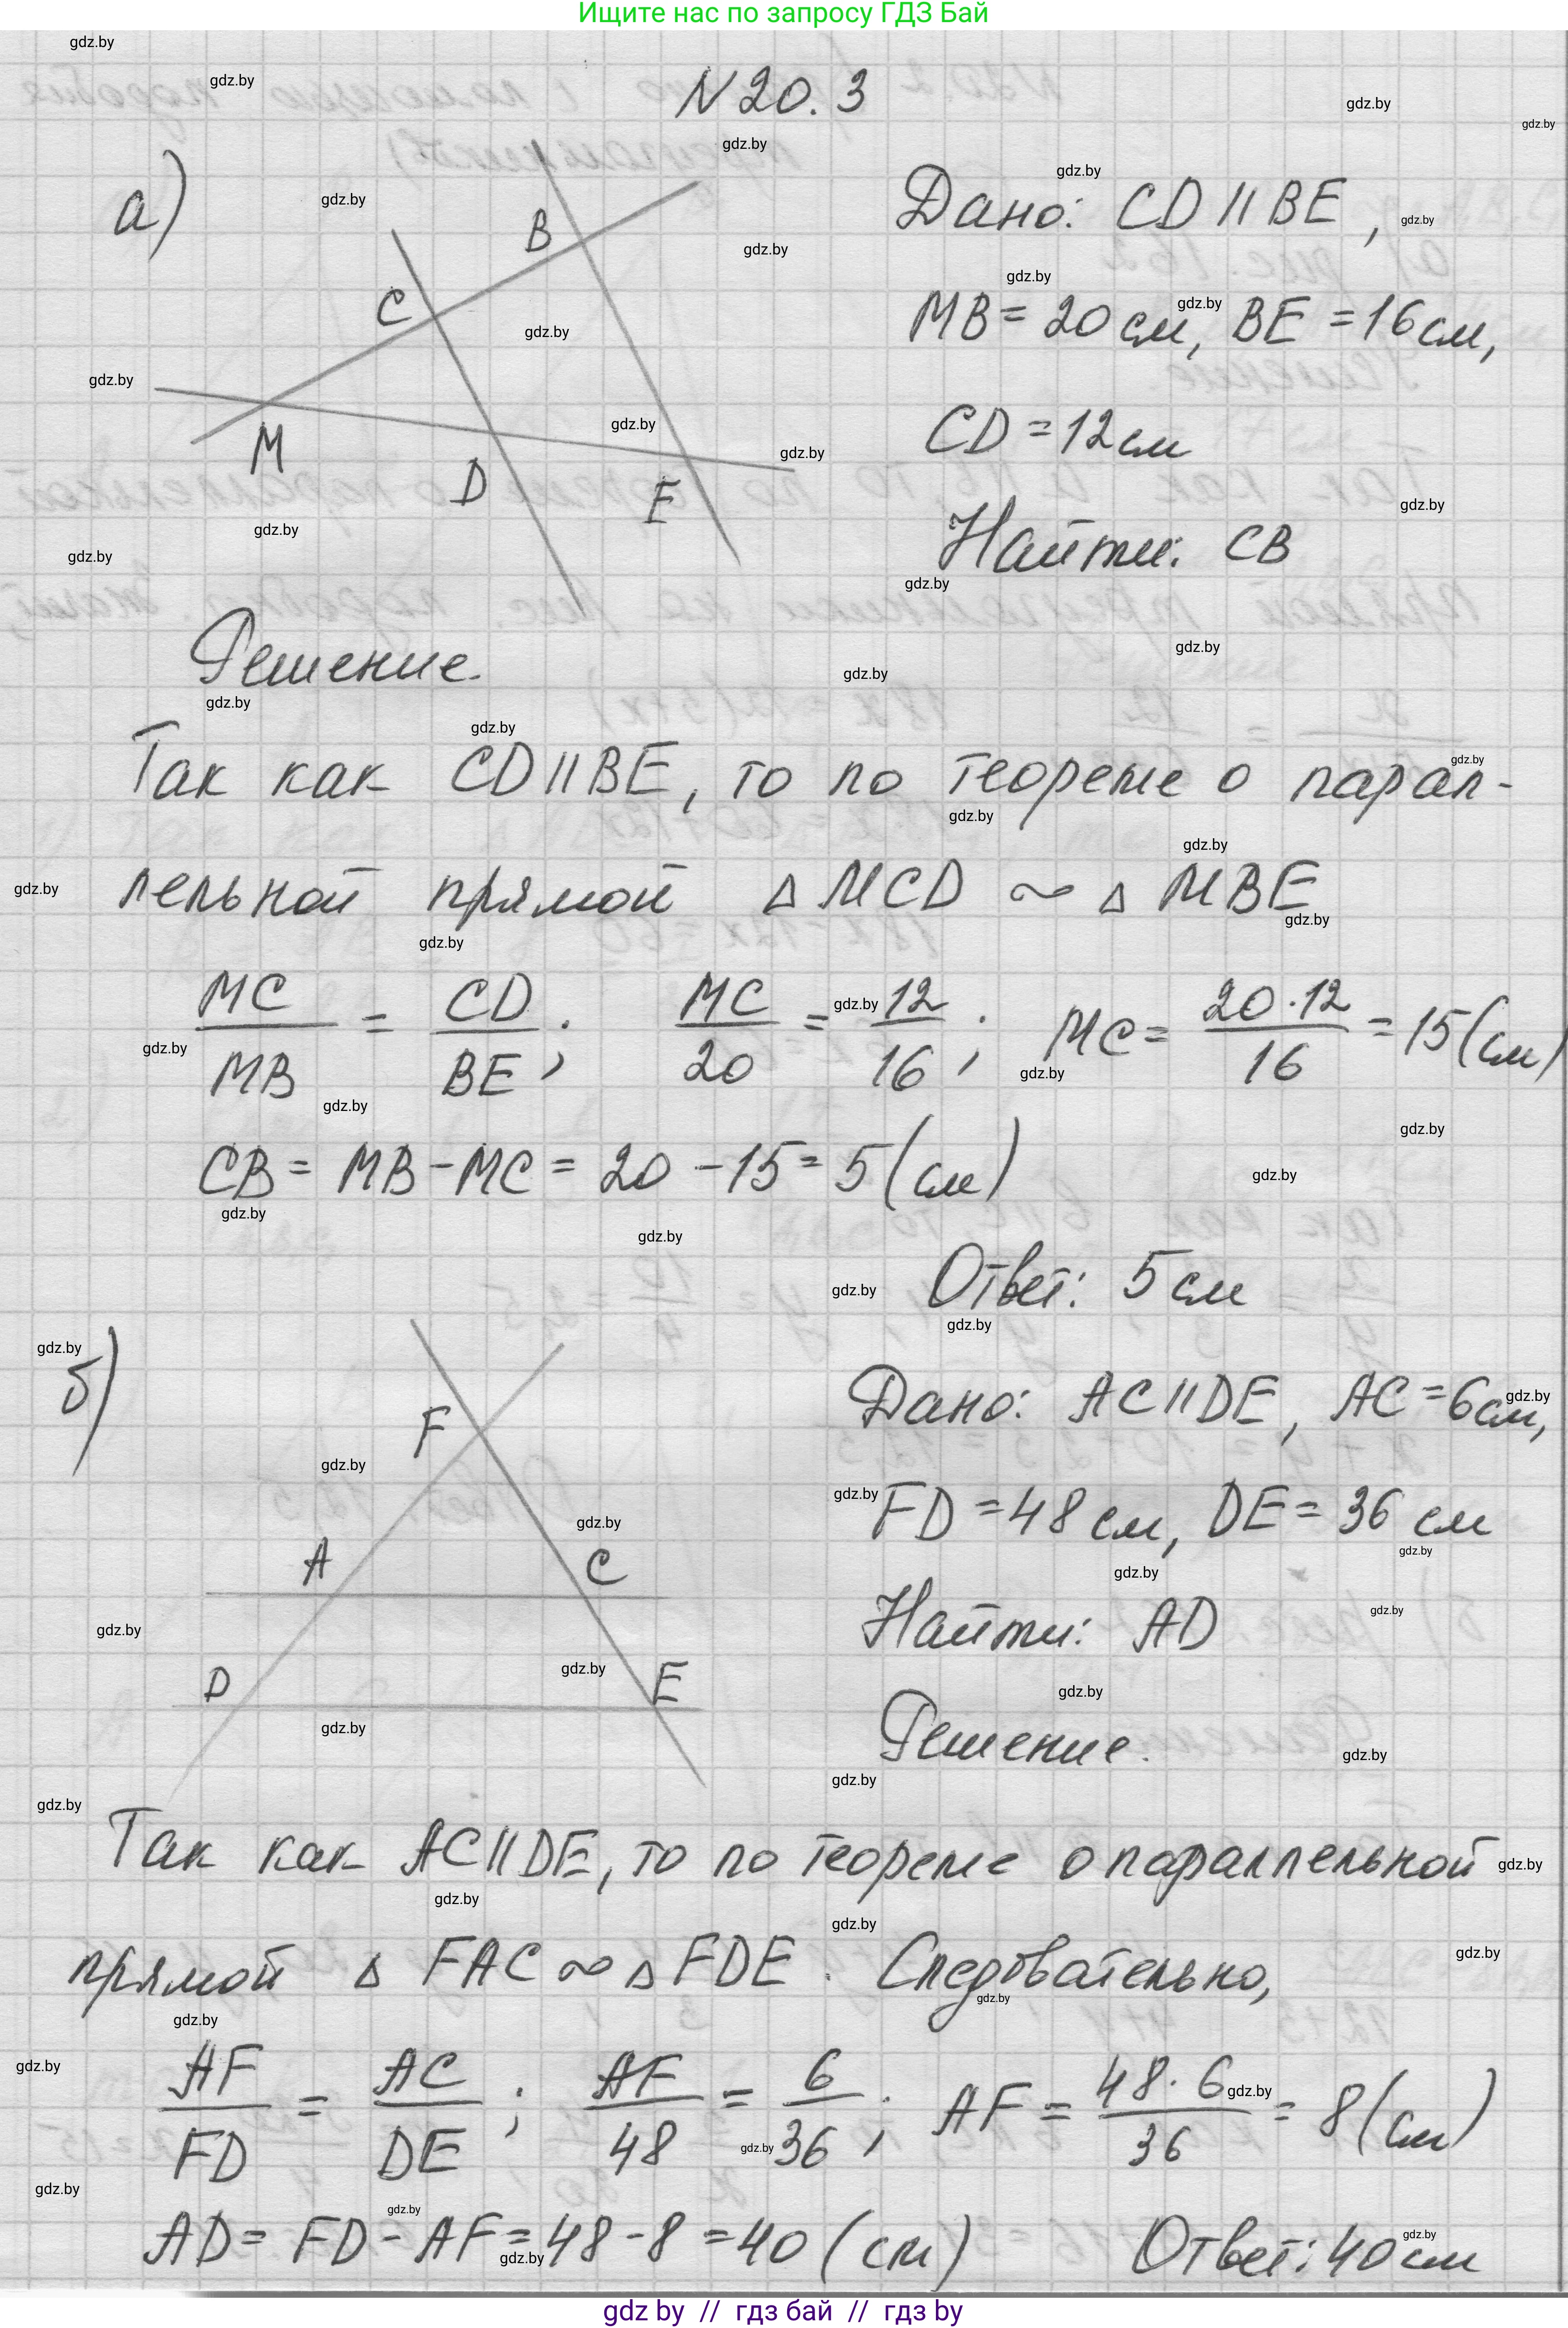 Ищите нас по запросу ГДЗ Бай
N 20.3
а)
B
C
M
D
E
Дано: CD || BE,
MB = 20 см, BE = 16 см,
CD = 12 см
Найти: CB
Решение.
Так как CD || BE, то по теореме о парал-
лельной прямой △ MCD ∾ △ MBE
MC/MB = CD/BE; MC/20 = 12/16; MC = 20·12/16 = 15 (см)
CB = MB - MC = 20 - 15 = 5 (см)
Ответ: 5 см
б)
F
A
C
D
E
Дано: AC || DE, AC = 6 см,
FD = 48 см, DE = 36 см
Найти: AD
Решение.
Так как AC || DE, то по теореме о параллельной
прямой △ FAC ∾ △ FDE. Следовательно,
AF/FD = AC/DE; AF/48 = 6/36; AF = 48·6/36 = 8 (см)
AD = FD - AF = 48 - 8 = 40 (см) Ответ: 40 см
gdz by // гдз бай // гдз by